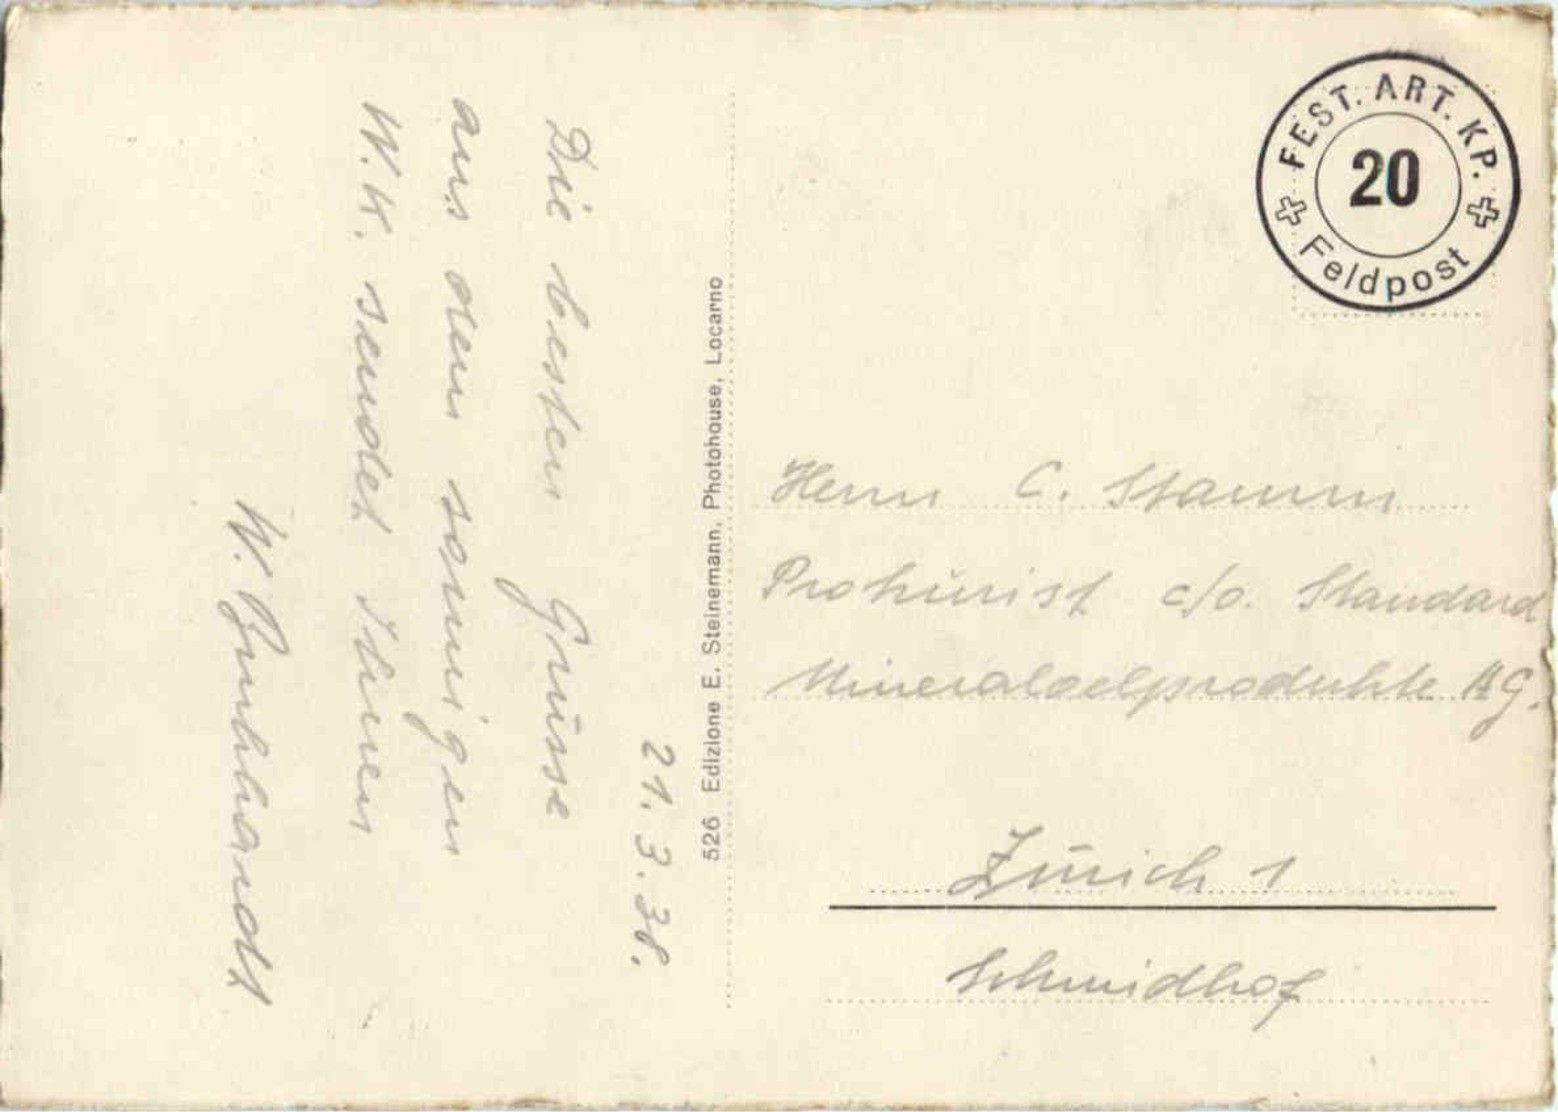 21. 3. 38.
Die besten Grüsse
aus dem sonnigen
W.K. sendet Ihnen
W.
526 Edizione E. Steinemann, Photohouse, Locarno
FEST. ART. KP.
20
Feldpost
Herrn C. Stamm
Prokurist c/o. Standard
Mineraloelprodukte AG.
Zürich 1
Schmidhof